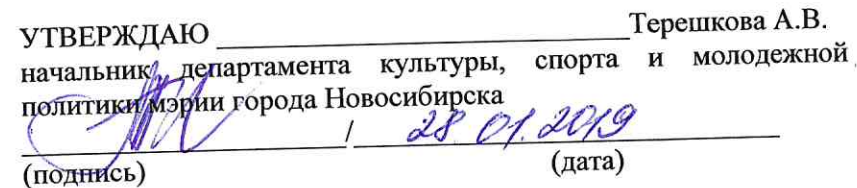 УТВЕРЖДАЮ ______________________________ Терешкова А.В.
начальник департамента культуры, спорта и молодежной
политики мэрии города Новосибирска
____________________ / 28.01.2019
(подпись) (дата)